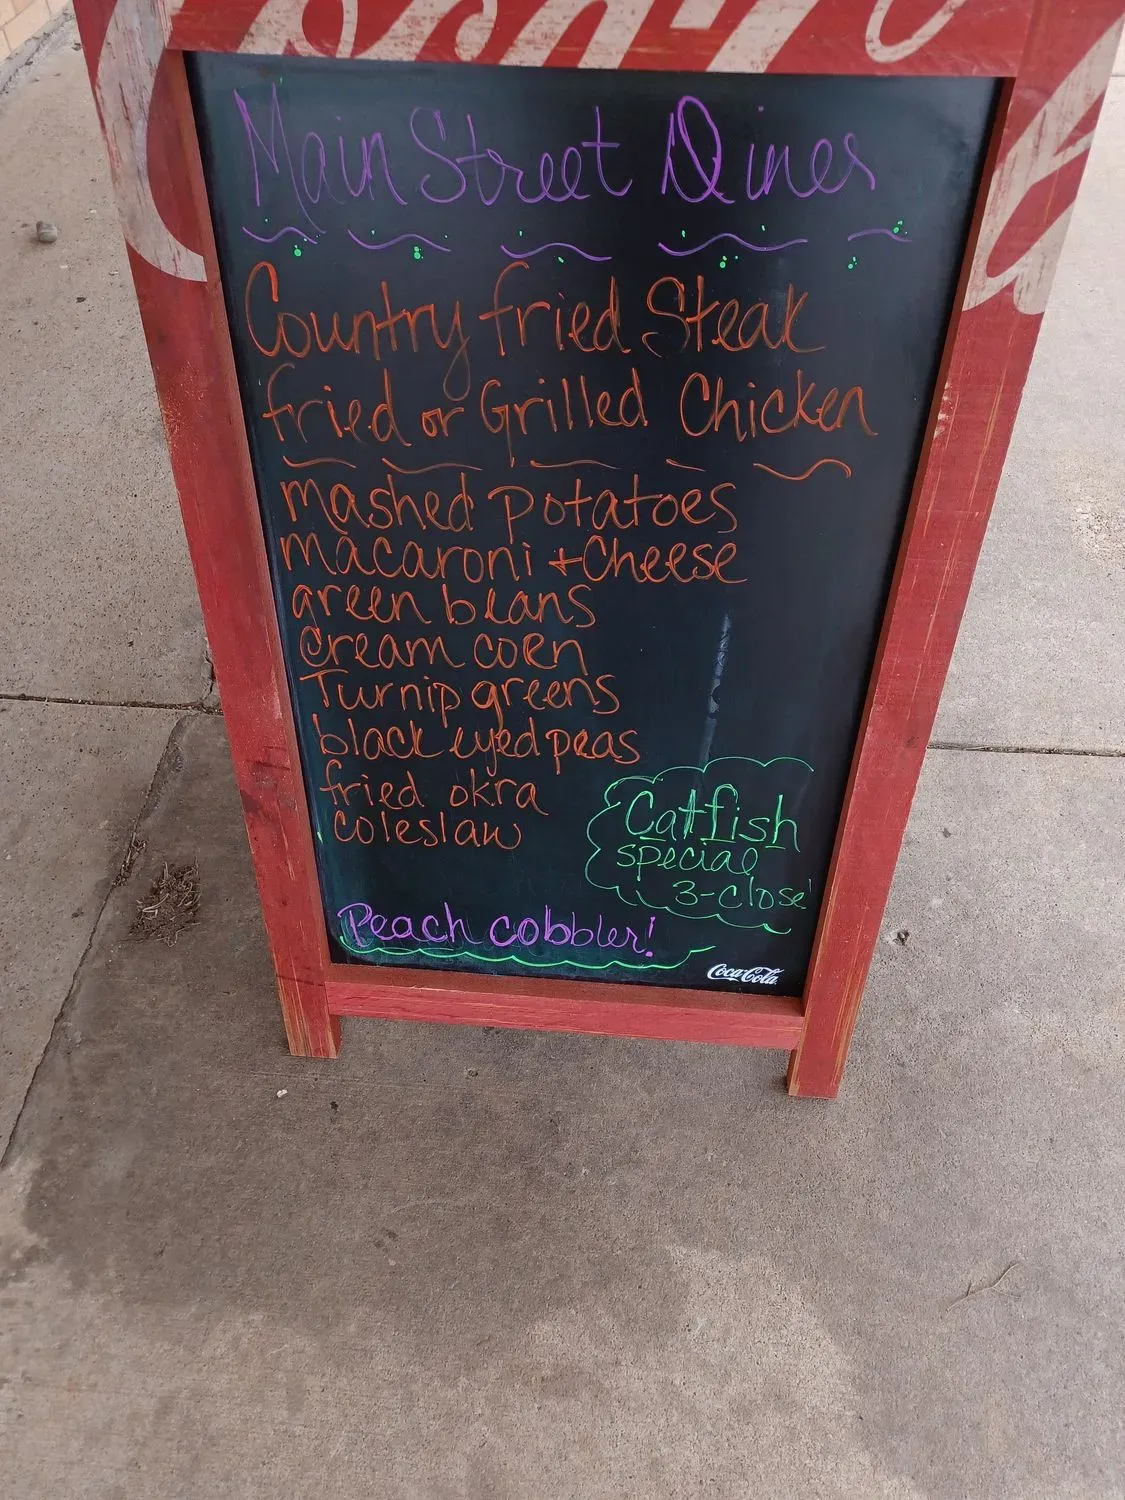 Main Street Diner
Country fried Steak
fried or Grilled Chicken
mashed potatoes
macaroni + Cheese
green beans
cream corn
Turnip greens
black eyed peas
fried okra
coleslaw
Catfish
special
3-close
Peach cobbler!
Coca-Cola